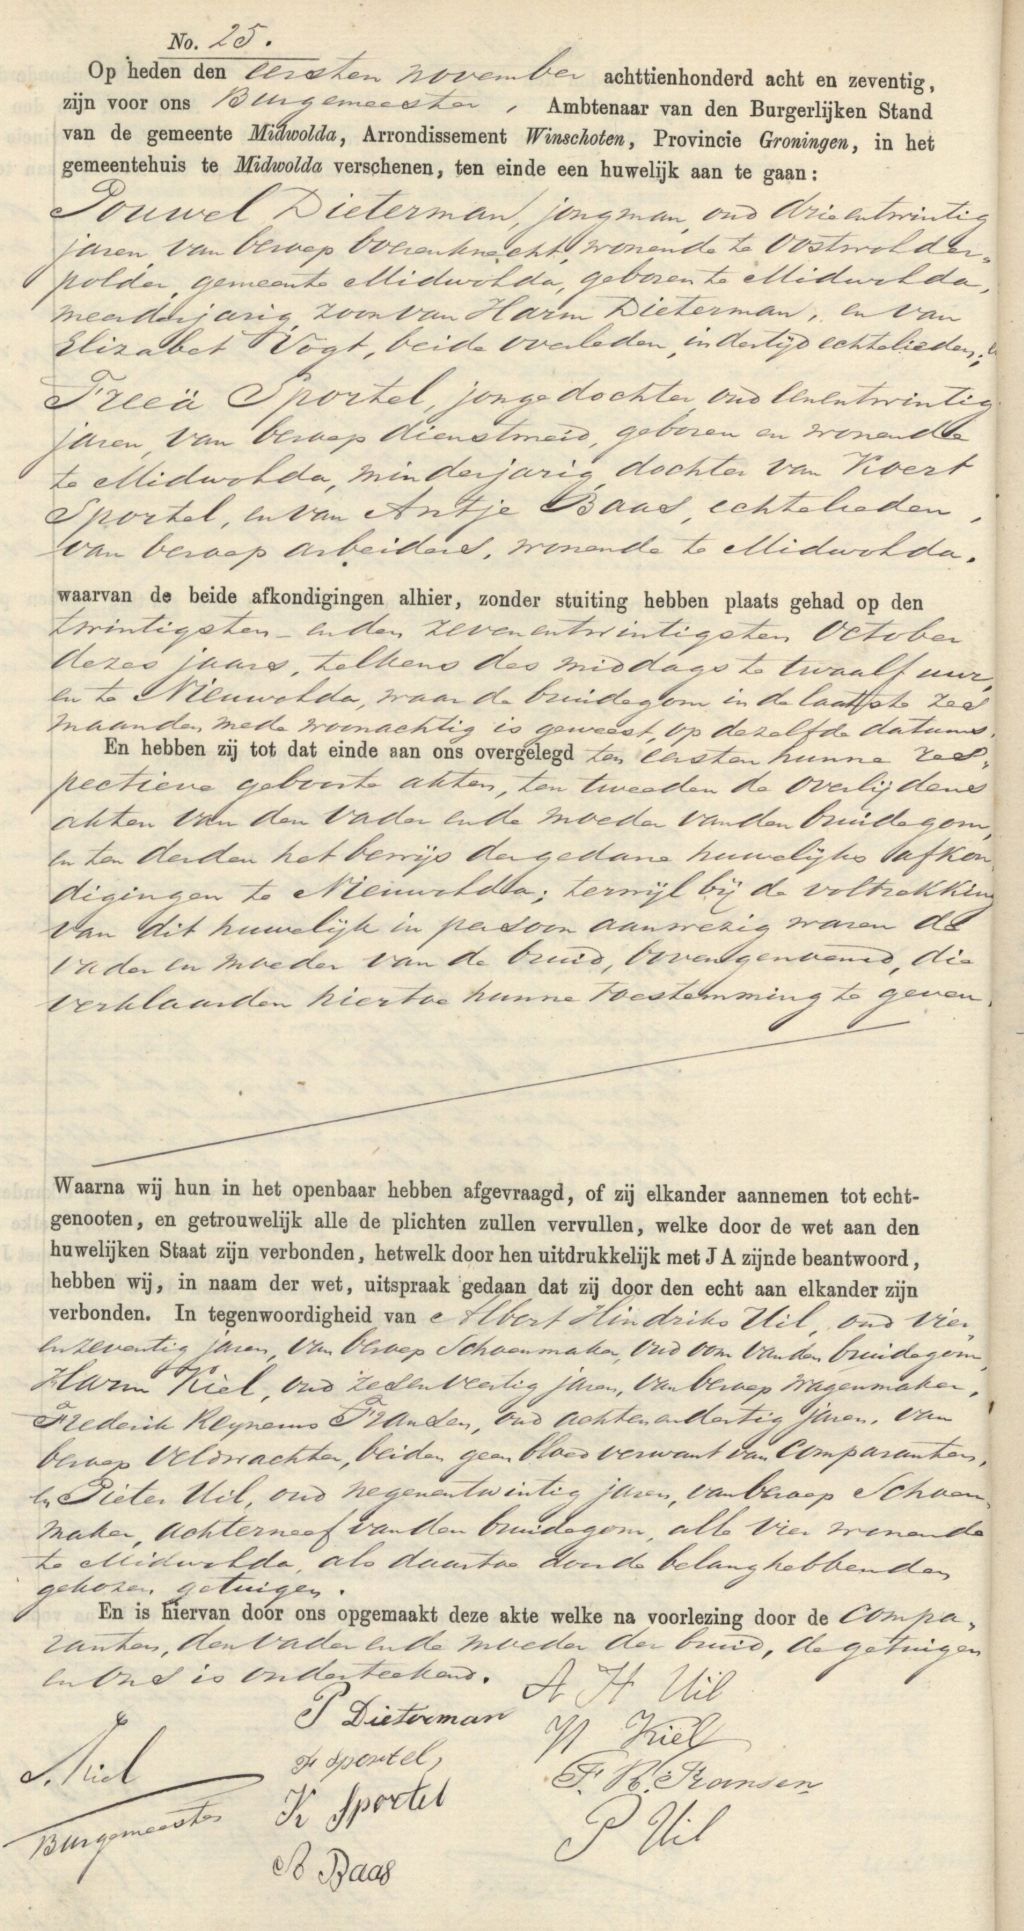 No. 25.
Op heden den eersten november achttienhonderd acht en zeventig,
zijn voor ons Burgemeester, Ambtenaar van den Burgerlijken Stand
van de gemeente Midwolda, Arrondissement Winschoten, Provincie Groningen, in het
gemeentehuis te Midwolda verschenen, ten einde een huwelijk aan te gaan:
Pouwel Dieterman, jongman, oud drieentwintig
jaren, van beroep boerenknecht, wonende te Oostwolder-
polder, gemeente Midwolda, geboren te Midwolda,
meerderjarig, zoon van Harm Dieterman, en van
Elizabet Vogt, beide overleden, indertijd echtelieden;
Freeä Sportel, jongedochter, oud eenentwintig
jaren, van beroep dienstmeid, geboren en wonende
te Midwolda, minderjarig, dochter van Koert
Sportel, en van Antje Baas, echtelieden,
van beroep arbeiders, wonende te Midwolda.
waarvan de beide afkondigingen alhier, zonder stuiting hebben plaats gehad op den
twintigsten en den zevenentwintigsten October
dezes jaars, telkens des middags te twaalf uur,
en te Nieuwolda, waar de bruidegom in de laatste zes
maanden mede woonachtig is geweest, op dezelfde datums.
En hebben zij tot dat einde aan ons overgelegd ten eersten hunne res-
pectieve geboorte akten, ten tweeden de overlijdens
akten van den vader en de moeder van den bruidegom,
en ten derden het bewijs der gedane huwelijks afkon-
digingen te Nieuwolda; terwijl bij de voltrekking
van dit huwelijk in persoon aanwezig waren de
vader en moeder van de bruid, bovengenoemd, die
verklaarden hiertoe hunne toestemming te geven.
Waarna wij hun in het openbaar hebben afgevraagd, of zij elkander aannemen tot echt-
genooten, en getrouwelijk alle de plichten zullen vervullen, welke door de wet aan den
huwelijken Staat zijn verbonden, hetwelk door hen uitdrukkelijk met JA zijnde beantwoord,
hebben wij, in naam der wet, uitspraak gedaan dat zij door den echt aan elkander zijn
verbonden. In tegenwoordigheid van Albert Hindriks Uil, oud vier-
enzeventig jaren, van beroep Schoenmaker, oud oom van den bruidegom,
Harm Kiel, oud zesenveertig jaren, van beroep wagenmaker,
Frederik Reynerus Fransen, oud achtenendertig jaren, van
beroep Veldwachter, beiden geen bloedverwant van Comparanten,
en Pieter Uil, oud negenentwintig jaren, van beroep Schoen-
maker, achterneef van den bruidegom, alle vier wonende
te Midwolda, als daartoe door de belanghebbenden
gekozen getuigen.
En is hiervan door ons opgemaakt deze akte welke na voorlezing door de Compa-
ranten, den vader en de moeder der bruid, de getuigen
en ons is onderteekend.
A H Uil
P Dieterman
H Kiel
F Sportel,
F. R. Fransen
J. Kiel
Burgemeester
K Sportel
P Uil
A Baas